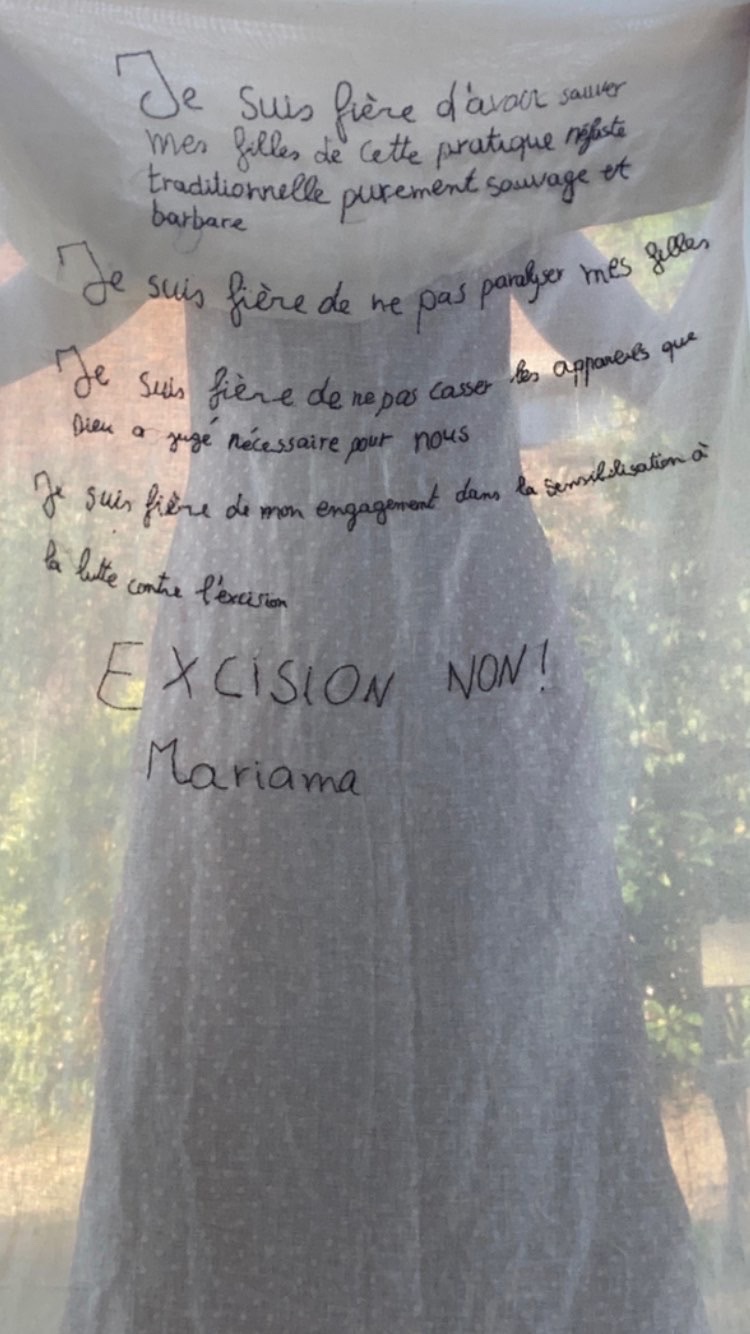 Je suis fière d'avoir sauver
mes filles de cette pratique néfaste
traditionnelle purement sauvage et
barbare
Je suis fière de ne pas paralyser mes filles
Je suis fière de ne pas casser les appareils que
Dieu a jugé nécessaire pour nous
Je suis fière de mon engagement dans la sensibilisation à
la lutte contre l'excision
EXCISION NON!
Mariama